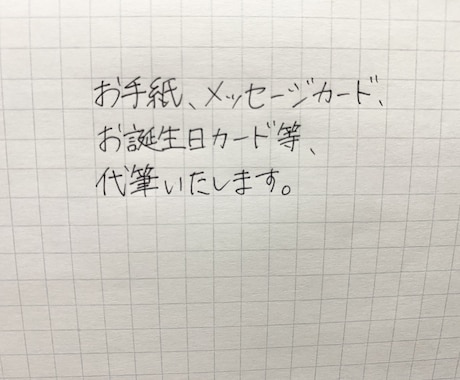 お手紙、メッセージカード、
お誕生日カード等、
代筆いたします。